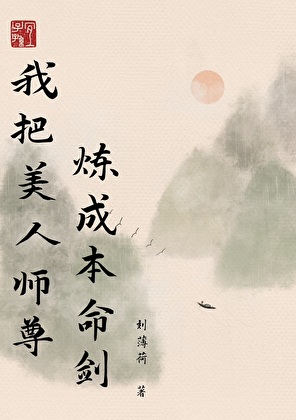 我把美人师尊
炼成本命剑
刘薄荷 著